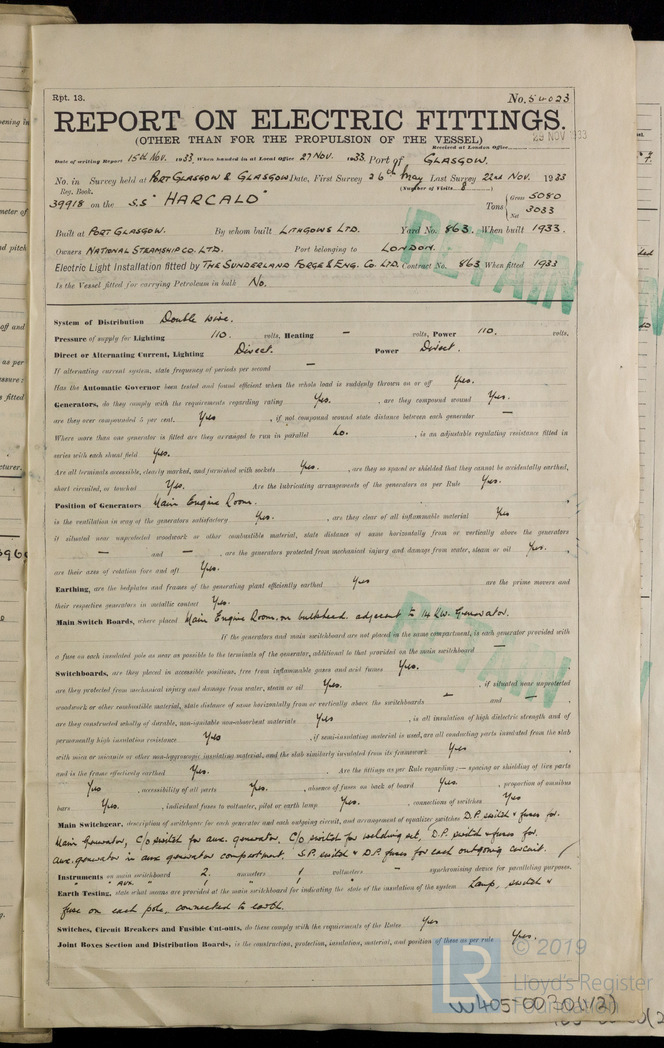 Rpt. 13.
No. 54023
REPORT ON ELECTRIC FITTINGS.
(OTHER THAN FOR THE PROPULSION OF THE VESSEL)
29 NOV 1933
Received at London Office
Date of writing Report 15th Nov. 1933. When handed in at Local Office 27 Nov. 1933. Port of GLASGOW.
No. in Survey held at PORT GLASGOW & GLASGOW Date, First Survey 26th May Last Survey 22nd Nov. 1933
Reg. Book. (Number of Visits 8)
39918 on the S.S "HARCALO" Tons Gross 5080
Net 3033
Built at PORT GLASGOW. By whom built LITHGOWS LTD. Yard No. 863. When built 1933.
Owners NATIONAL STEAMSHIP CO. LTD. Port belonging to LONDON.
Electric Light Installation fitted by THE SUNDERLAND FORGE & ENG. CO. LTD. Contract No. 863 When fitted 1933
Is the Vessel fitted for carrying Petroleum in bulk No.
RETAIN
System of Distribution Double wire.
Pressure of supply for Lighting 110. volts, Heating - volts, Power 110. volts.
Direct or Alternating Current, Lighting Direct. Power Direct.
If alternating current system, state frequency of periods per second —
Has the Automatic Governor been tested and found efficient when the whole load is suddenly thrown on or off Yes.
Generators, do they comply with the requirements regarding rating Yes. , are they compound wound Yes.
are they over compounded 5 per cent. Yes , if not compound wound state distance between each generator —
Where more than one generator is fitted are they arranged to run in parallel , is an adjustable regulating resistance fitted in
series with each shunt field Yes.
Are all terminals accessible, clearly marked, and furnished with sockets Yes. , are they so spaced or shielded that they cannot be accidentally earthed,
short circuited, or touched Yes. Are the lubricating arrangements of the generators as per Rule Yes.
Position of Generators Main Engine Room.
is the ventilation in way of the generators satisfactory Yes. , are they clear of all inflammable material Yes
if situated near unprotected woodwork or other combustible material, state distance of same horizontally from or vertically above the generators
— and — , are the generators protected from mechanical injury and damage from water, steam or oil Yes.
are their axes of rotation fore and aft Yes.
Earthing, are the bedplates and frames of the generating plant efficiently earthed Yes are the prime movers and
their respective generators in metallic contact Yes.
Main Switch Boards, where placed Main Engine Room, on bulkhead adjacent to 14 Kw. Generator.
If the generators and main switchboard are not placed in the same compartment, is each generator provided with
a fuse on each insulated pole as near as possible to the terminals of the generator, additional to that provided on the main switchboard —
Switchboards, are they placed in accessible positions, free from inflammable gases and acid fumes Yes.
are they protected from mechanical injury and damage from water, steam or oil Yes. , if situated near unprotected
woodwork or other combustible material, state distance of same horizontally from or vertically above the switchboards — and —
are they constructed wholly of durable, non-ignitable non-absorbent materials Yes , is all insulation of high dielectric strength and of
permanently high insulation resistance Yes , if semi-insulating material is used, are all conducting parts insulated from the slab
with mica or micanite or other non-hygroscopic insulating material, and the slab similarly insulated from its framework Yes
and is the frame effectively earthed Yes. Are the fittings as per Rule regarding:— spacing or shielding of live parts
Yes , accessibility of all parts Yes. , absence of fuses on back of board Yes. , proportion of omnibus
bars Yes. , individual fuses to voltmeter, pilot or earth lamp Yes. , connections of switches Yes
Main Switchgear, description of switchgear for each generator and each outgoing circuit, and arrangement of equalizer switches D.P. switch & fuses for
Main Generator, C/O switch for aux. generator, C/O switch for welding set, D.P. switch & fuses for
aux. generator in aux generator compartment. S.P. switch & D.P. fuses for each outgoing circuit.
Instruments on main switchboard 2. ammeters 1 voltmeters - synchronising device for paralleling purposes.
" AUX. " 1 " 1 "
Earth Testing, state what means are provided at the main switchboard for indicating the state of the insulation of the system Lamp, switch &
fuse on each pole, connected to earth.
Switches, Circuit Breakers and Fusible Cut-outs, do these comply with the requirements of the Rules Yes
Joint Boxes Section and Distribution Boards, is the construction, protection, insulation, material, and position of these as per rule Yes.
RETAIN
© 2019
LR Lloyd's Register
Foundation
W405-0030(1/2)